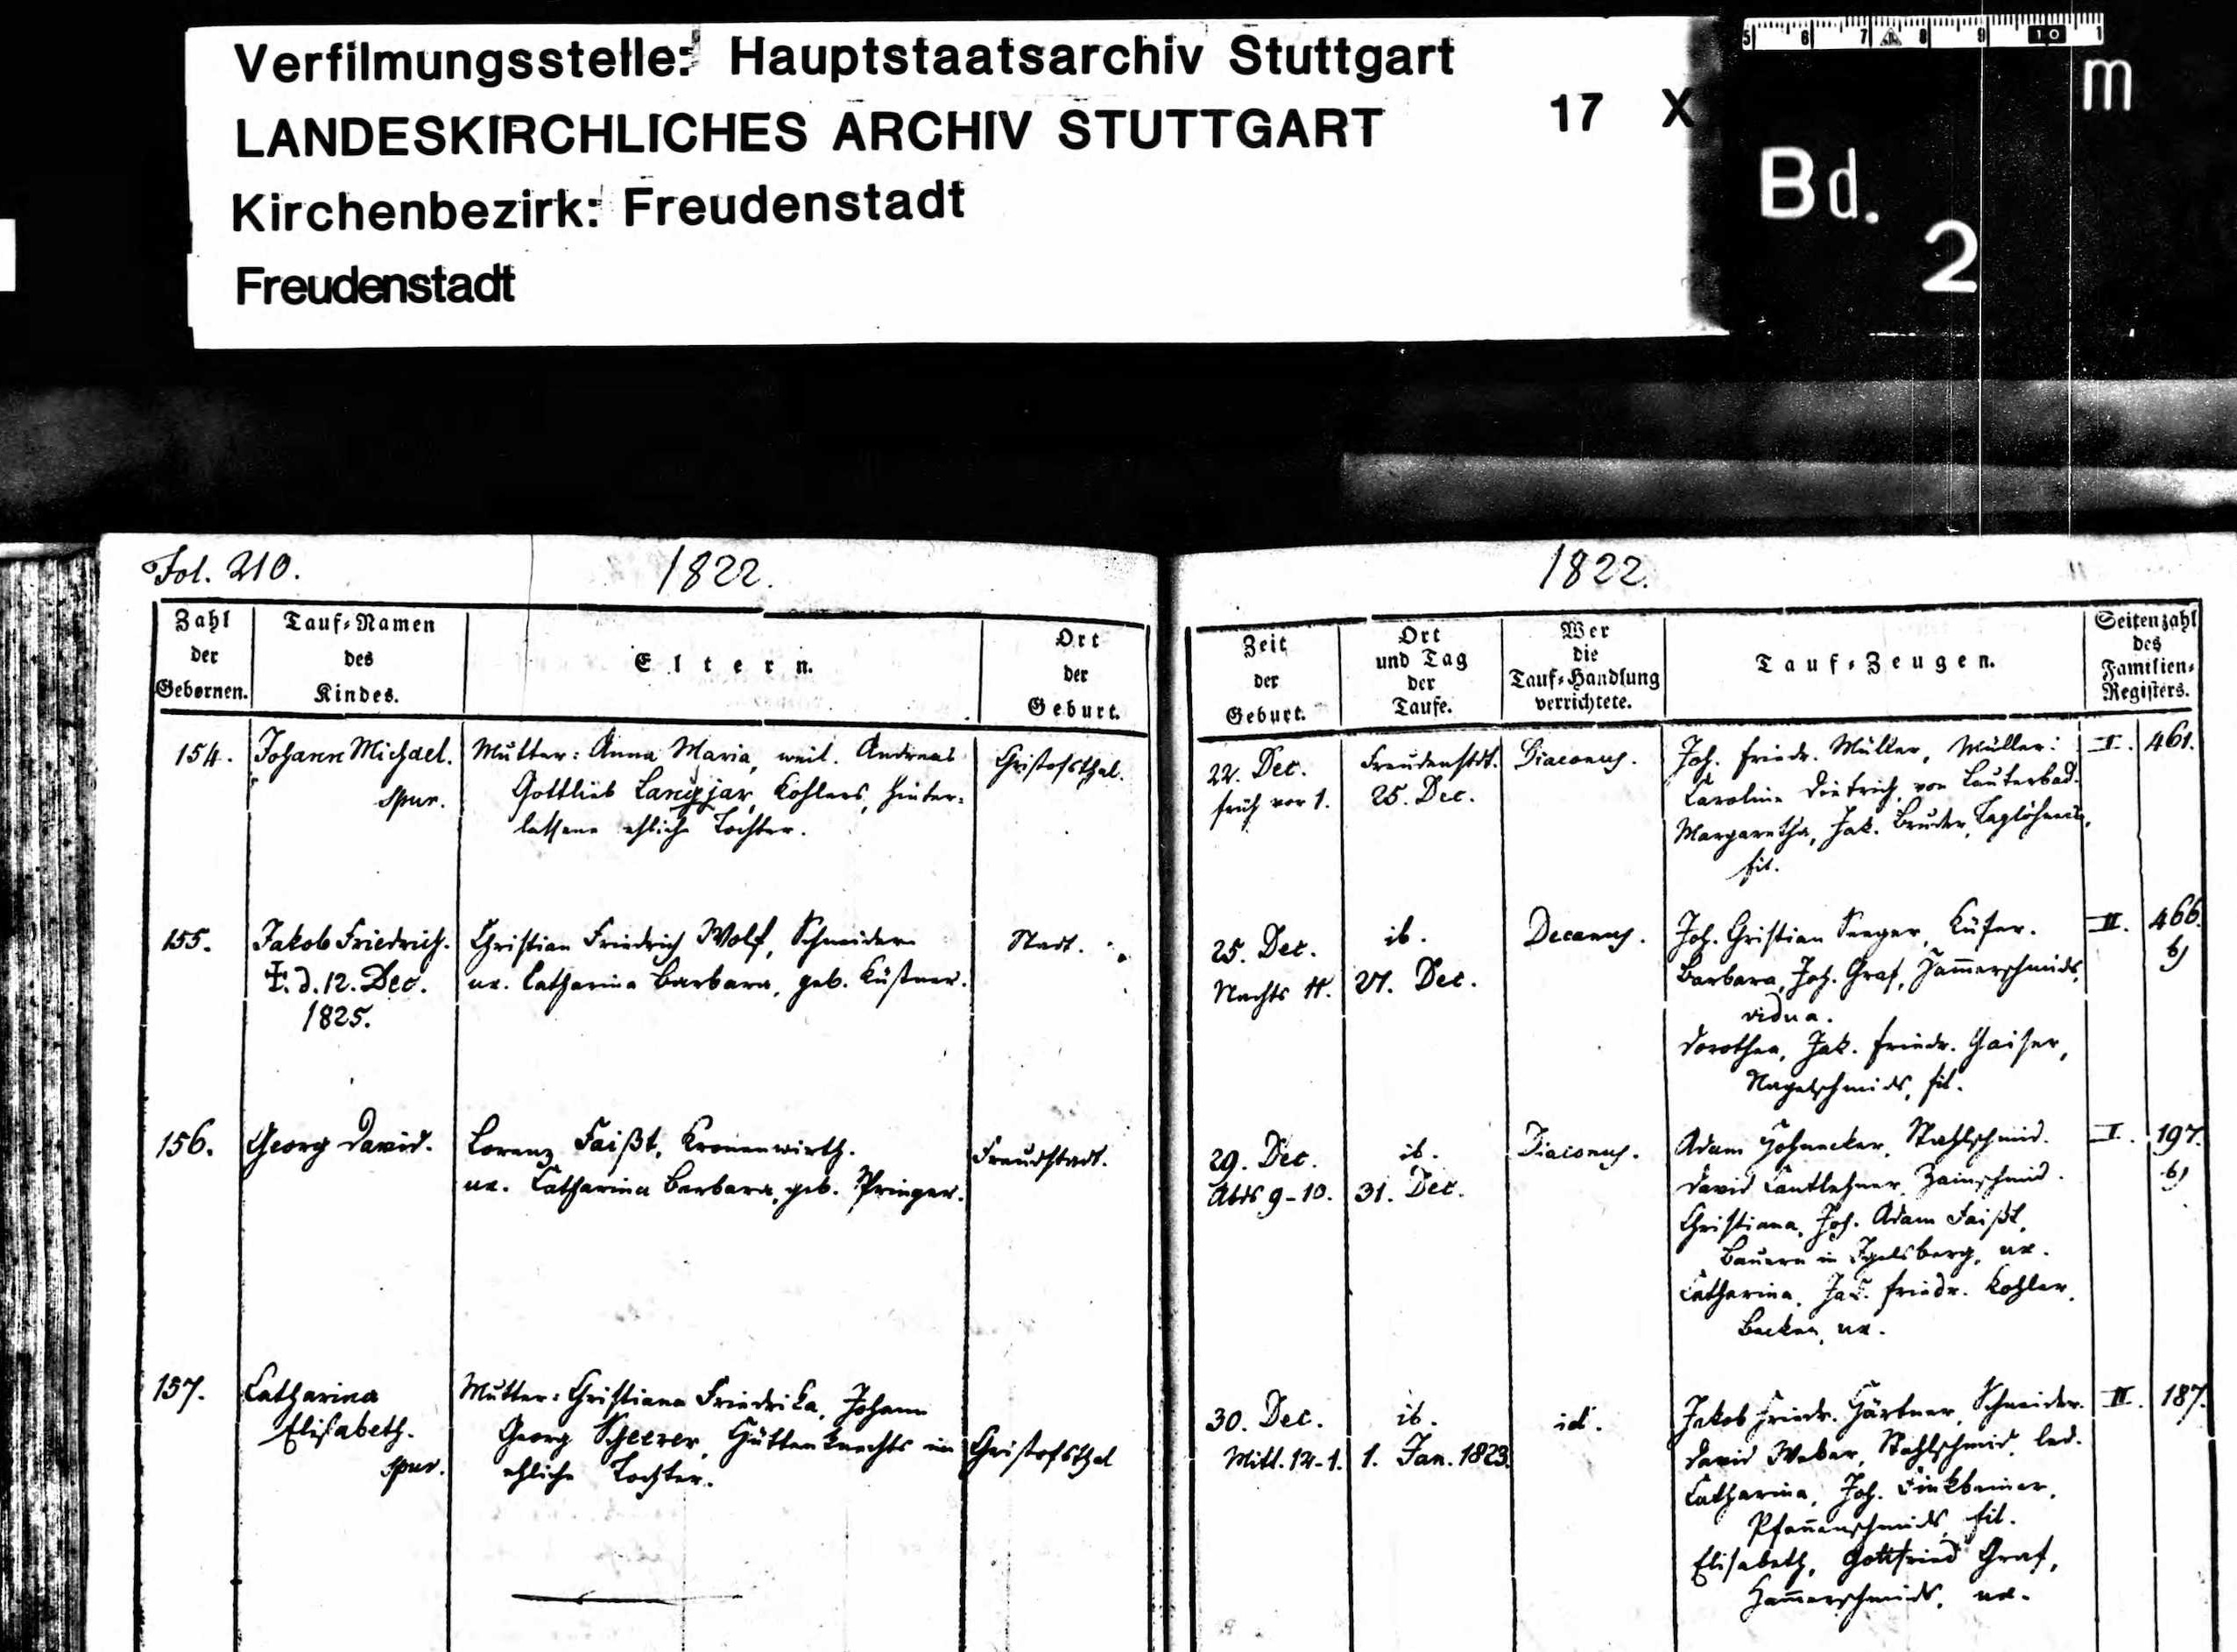 Verfilmungsstelle: Hauptstaatsarchiv Stuttgart
LANDESKIRCHLICHES ARCHIV STUTTGART 17 X
Kirchenbezirk: Freudenstadt
Freudenstadt
5 6 7 8 9 10 1
m
Bd.
2
Fol. 210. 1822.
Zahl der Gebornen.
Tauf-Namen des Kindes.
Eltern.
Ort der Geburt.
154. Johann Michael.
spur.
Mutter: Anna Maria, weil. Andreas
Gottlieb Langjar, Kohlers, hinter-
lassene ehliche Tochter.
Christofsthal.
155. Jakob Friedrich.
d. 12. Dec.
1825.
Christian Friedrich Wolf, Schneider
ux. Catharina Barbara, geb. Küstner.
Stadt.
156. Georg David.
Lorenz Faißt, Kronenwirth.
ux. Catharina Barbara, geb. Springer.
Freudstadt.
157. Catharina
Elisabeth.
spur.
Mutter: Christiana Friedrika, Johann
Georg Scheerer, Hüttenknechts im
ehliche Tochter.
Christofsthal
1822.
Zeit der Geburt.
Ort und Tag der Taufe.
Wer die Tauf-Handlung verrichtete.
Tauf-Zeugen.
Seitenzahl des Familien-Registers.
22. Dec.
früh vor 1.
Freudenstdt.
25. Dec.
Diaconus.
Joh. Friedr. Müller, Müller.
Caroline Dietrich, von Lauterbad.
Margaretha, Jak. Bruder, Taglöhners,
fil.
I. 461.
25. Dec.
Nachts 11.
ib.
27. Dec.
Decanus.
Joh. Christian Seeger, Küfer.
Barbara, Joh. Graf, Ham̄erschmids,
vidua.
Dorothea, Jak. Friedr. Gaiser,
Nagelschmids, fil.
II. 466.
b)
29. Dec.
Abds 9-10.
ib.
31. Dec.
Diaconus.
Adam Hohnecker, Stahlschmid.
David Zainschmid.
Christiana, Joh. Adam Faißt,
Bauern in Igelsberg, ux.
Catharina, Jak. Friedr. Kohler,
Becken, ux.
I. 197.
b)
30. Dec.
Mitt. 12-1.
ib.
1. Jan. 1823.
id.
Jakob Friedr. Gärtner, Schneider.
David Weber, Stahlschmid, led.
Catharina, Joh. Finkbeiner,
Pfan̄enschmids, fil.
Elisabeth, Gottfried Graf,
Ham̄erschmids, ux.
II. 187.